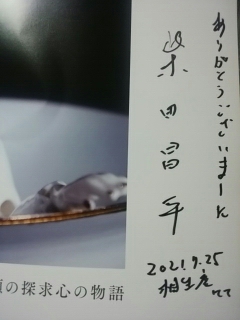 ありがとうございまーす
柴田昌平
2021.9.25
相生座にて
の探求心の物語